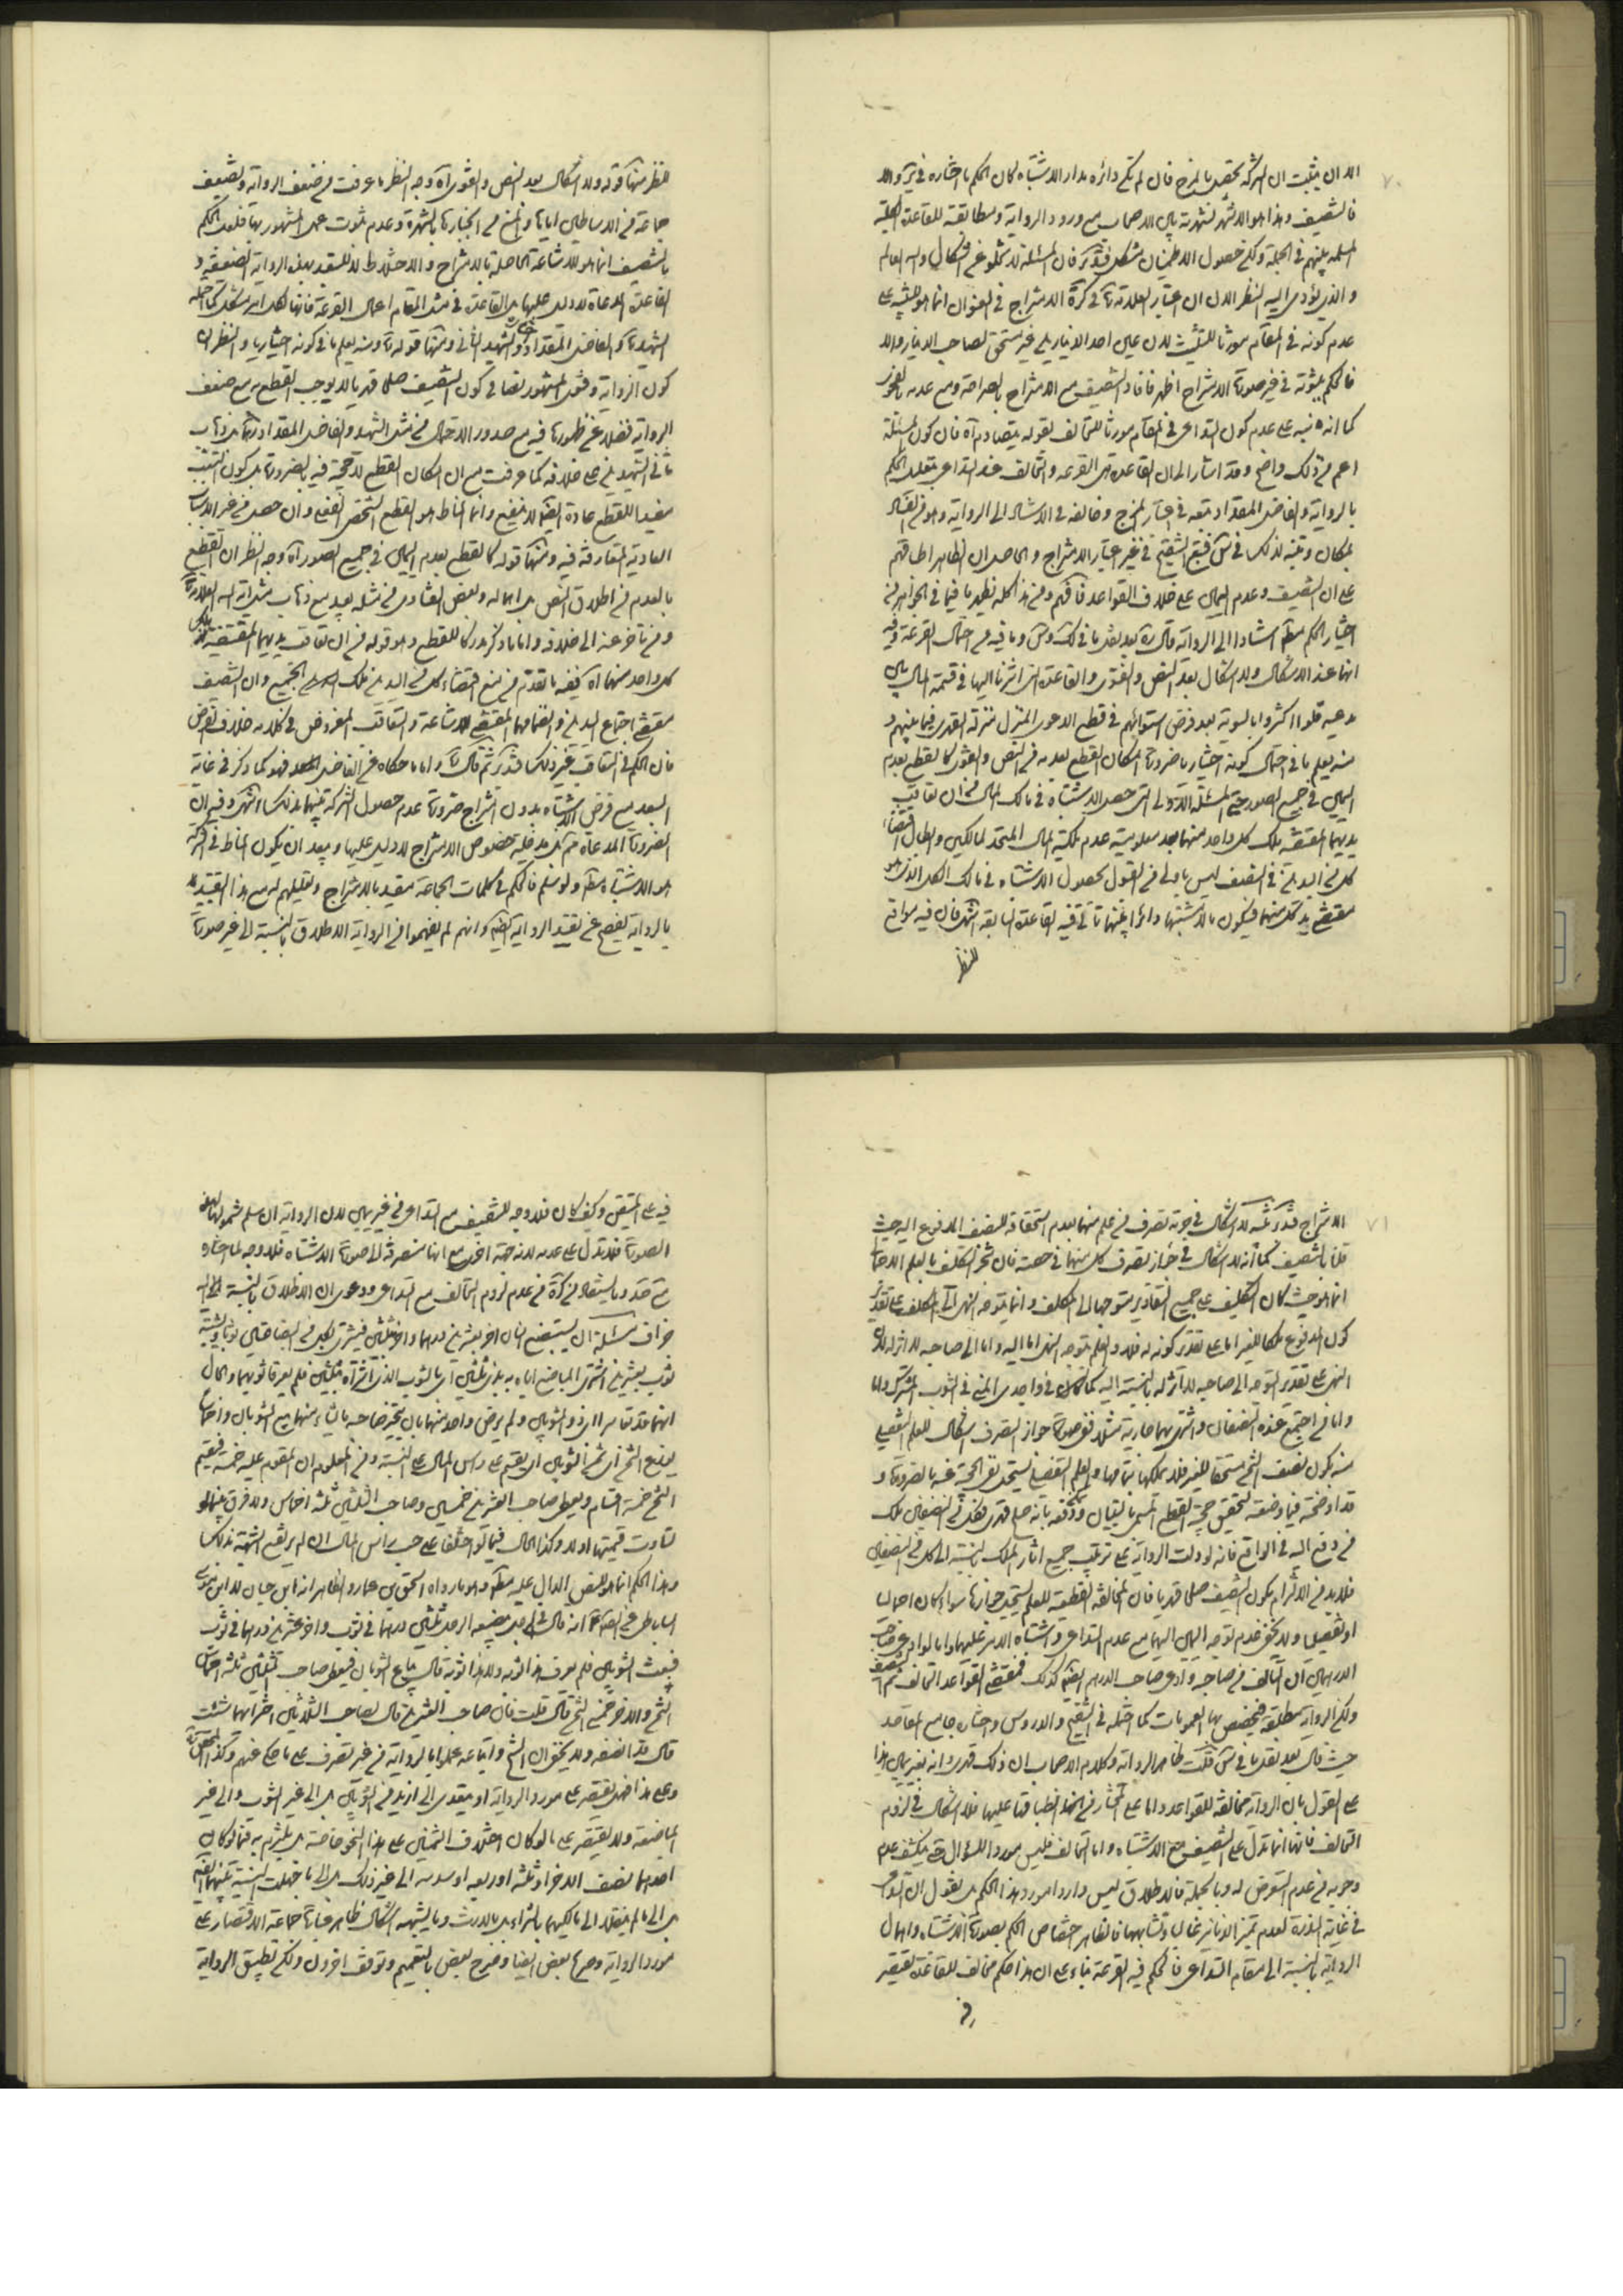 ٧٠
الا ان يثبت ان الشركة تحصل بالمزج فان لم تكن دائرة مدار الاشتباه كان الحكم باختياره في
فالتنصيف وهذا هو الاشهر لشهرته بين الاصحاب مع ورود الرواية ومطابقة للقاعدة
المسلمة بينهم في الجملة ولكن حصول الاطمينان مشكل فتدبر فان المسئلة لا تخلو عن اشكال والله العالم
والذي يؤدي اليه النظر الان ان اعتبار العلامة في كرة الامتزاج في العنوان انما هو للتنبيه على
عدم كونه في المقام مورثا للتثليث لان على احد الدنانير غير مستحق لصاحب الدينار والا
فالحكم بثبوته في غير صورة الامتزاج اظهر فافاد التنصيف مع الامتزاج بالصراحة ومع عدمه بالفحوى
كما انه نبه على عدم كون التداعي في المقام مورثا للتحالف بقوله يتصادم اه فان كون المسئلة
اعم من ذلك واضح وقد اشار الى ان القاعدة هي القرعة والتحالف عند التداعي بتعليل الحكم
بالرواية والفاضل المقداد تبعه في اعتبار المزج وخالفه في الاستناد الى الرواية وهو في
بمكان وتنبه لذلك في فتبع التنقيح في غير اعتبار الامتزاج والحاصل ان الظاهر اطباقهم
على ان التنصيف وعدم اليمين على خلاف القواعد فافهم ومن هذا كله يظهر ما فيما في الجواهر من
اختيار الحكم مطلقا استنادا الى الرواية قال ره بعد نقل ما في لك وس وما فيه من احتمال القرعة وفيه
انها عند الاشكال ولا اشكال بعد النص والفتوى والقاعدة التي اشرنا اليها في قسمة المال بين
مدعييه قلوا او كثروا بالسوية بعد فرض استوائهم في قطع الدعوى المنزل منزلة التعدي فيما بينهم و
منه يعلم ما في احتمال كونه اختياريا ضرورة امكان القطع بعدمه في النص والفتوى كالقطع بعدم
اليمين في جميع الصور حتى المسئلة الاولى التي حصل الاشتباه في مالك المال في ان تعاقب
يديهما المقتضية ملك كل واحد منهما بعد معلومية عدم ملكية المال المتحد لمالكين وابطال اقتضاء
كل من اليدين في النصف ليس باولى من القول بحصول الاشتباه في مالك الكل الذي هو
مقتضى يد كل منهما فيكون بالاشتباه دائرا بينهما تأتي فيه القاعدة السابقة انتهى فان فيه مواقع
للنظر
للنظر منها قوله ولا اشكال بعد النص والفتوى اه وجه النظر ما عرفت من ضعف الرواية وتضعيف
جماعة من الاساطين اياها والمنع من انجبارها بالشهرة وعدم ثبوت عمل المشهور بها فلعل الحكم
بالتنصيف انما هو للاشاعة الحاصلة بالامتزاج والاختلاط لا للتعبد بهذه الرواية الضعيفة و
القاعدة المدعاة لا دليل عليها بل القاعدة في مثل المقام اعمال القرعة فانها لكل امر مشكل كما احتمله
الشهيد ره والفاضل المقداد والشهيد الثاني ومنها قوله ره ومنه يعلم ما في كونه اختياريا والنظر ان
كون الرواية وفتوى المشهور نصا في كون التنصيف صلحا قهريا لا يوجب القطع به مع ضعف
الرواية فضلا عن ظهورها فيه مع صدور الاحتمال من مثل الشهيد والفاضل المقداد ره بل ذهاب
ثاني الشهيدين الى خلافه كما عرفت مع ان امكان القطع لا حجة فيه بالضرورة بل كون السبب
مفيدا للقطع عادة ايضا لا ينفع وانما المناط هو القطع الشخصي الفعلي وان حصل من غير الاسباب
العادية المتعارفة فيه ومنها قوله كالقطع بعدم اليمين في جميع الصور اه وجه النظر ان القطع
بالعدم من اطلاق النص بل اهماله وبعض الفتاوى في مثله بعيد مع ذهاب مثل اية الله العلامة ره
ومن تأخر عنه الى خلافه واما ما ذكر مدركا للقطع وهو قوله من ان تعاقب يديهما المقتضية ملك
كل واحد منهما اه ففيه ما تقدم من منع اقتضاء كل من اليدين ملك الجميع وان التنصيف
مقتضى اجتماع اليدين وانضمامهما المقتضي للاشاعة والتعاقب المفروض في كلامه خلاف الفرض
فان الحكم في التعاقب غير ذلك فتدبر ثم قال ره واما ما حكاه عن الفاضل فهو كما ذكر في غاية
البعد مع فرض الاشتباه بدون امتزاج ضرورة عدم حصول الشركة بينهما بذلك انتهى وفيه ان
الضرورة المدعاة ثم بل مدخلية خصوص الامتزاج لا دليل عليها ويبعد ان يكون المناط في الشركة
هو الاشتباه مطلقا ولو سلم فالحكم في كلمات الجماعة مقيد بالامتزاج وتعليلهم له مع هذا التقييد
بالرواية يفصح عن تقييد الرواية ايضا وانهم لم يفهموا من الرواية الاطلاق بالنسبة الى غير صورة
٧١
الامتزاج فتدبر تنبيه لا اشكال في حرمة تصرف من علم منهما بعدم استحقاقه للنصف المدفوع اليه حيث
قلنا بالتنصيف كما انه لا اشكال في جواز تصرف كل منهما في حصته فان تنجز التكليف بالعلم الاجمالي
انما هو حيث كان التكليف على جميع التقادير متوجها الى المكلف وانما يتوجه النهي الى المكلف على تقدير
كون المدفوع ملكا للغير اما على تقدير كونه له فلا والعلم بتوجه النهي اما اليه واما الى صاحبه لا اثر له لان
النهي على تقدير التوجه الى صاحبه لا اثر له بالنسبة اليه كما في واجدي المني في الثوب المشترك واما
واما من اجتمع عنده النصفان واشترى بهما جارية مثلا ففي صورة جواز التصرف اشكال للعلم التفصيلي
منه بكون نصف الثمن مستحقا للغير فلا يملكها بتمامها والعلم التفصيلي يستحيل نفي الحجية عنه بالضرورة و
قد اوضحته فيما وضعته لتحقيق حجية القطع المسمى بالتبيان ودفعه بانه صلح قهري فكل من النصفين ملك
من دفع اليه في الواقع فانه لو دلت الرواية على ترتيب جميع اثار الملك بالنسبة الى كل من النصفين
فلا بد من الالتزام بكون التنصيف صلحا قهريا فان المخالفة القطعية للعلم يستحيل جوازها سواء كان اجماليا
او تفصيليا ولا يخفى عدم توجه اليمين اليهما مع عدم التداعي واشتباه الامر عليهما واما لو ادعى صاحب
الدرهمين ان التالف من صاحبه وادعى صاحب الدرهم ايضا كذلك فمقتضى القواعد التحالف ثم التنصيف
ولكن الرواية مطلقة فيخصص بها العمومات كما احتمله في التنقيح والدروس واختاره جامع المقاصد
حيث قال بعد نقل ما في س قلت ظاهر الرواية وكلام الاصحاب ان ذلك قهري وانه بغير يمين هذا
على القول بان الرواية مخالفة للقواعد واما على المختار من انطباقها عليها فلا اشكال في لزوم
التحالف فانها انما تدل على التنصيف مع الاشتباه واما التحالف فليس موردا للسؤال حتى يكشف عدم
وجوبه من عدم التعرض له وبالجملة فالاطلاق ليس واردا مورد هذا الحكم بل نقول ان التداعي
في غاية الندرة لعدم تميز الدنانير غالبا وتشابهها فالظاهر اختصاص الحكم بصورة الاشتباه واهمال
الرواية بالنسبة الى مقام التداعي فالحكم فيه القرعة بناء على ان هذا حكم مخالف للقاعدة يقتصر
فيه
فيه على المتيقن وكيف كان فلا وجه للتنصيف مع التداعي من غير يمين لان الرواية ان سلم شمولها لهذه
الصورة فلا تدل على عدمه لانه جهة اخرى مع انها منصرفة الى صورة الاشتباه فلا وجه لما اختاره
مع صد وما يستفاد من كرة من عدم لزوم التحالف مع التداعي ودعوى ان الاطلاق بالنسبة اليه
جزاف مسئلة ان استبضع انسان اخر بعشرين درهما واخر بثلثين فيشتري بكل من البضاعتين ثوبا ويشتبه
ثوب بعشرين اشترى المباضع اياه به بذي ثلثين اي بالثوب الذي اشتراه بثلثين فلم يعرفا ثوبيهما والحال
انهما قد تعاسرا اي ذو الثوبين ولم يرض واحد منهما بان يتخير صاحبه ما شاء منهما بيع الثوبان واحاطا
بمبلغ الثمن اي ثمن الثوبين اي يقسم على راس المال على النسبة ومن المعلوم ان المقوم عليه خمسة فيقسم
الثمن خمسة اقسام ويعطى صاحب العشرين خمسين وصاحب الثلثين ثلثة اخماس ولا فرق بينما لو
تساوت قيمتهما او لا وكذا الحال فيما لو اختلفا على حسب راس المال ان لم يرتفع الشبهة بذلك
وهذا الحكم انما هو للنص الدال عليه مطلقا وهو ما رواه اسحق بن عمار والظاهر انه ابن حيان لا ابن موسى
الساباطي عن الصادق ع انه قال في الرجل يبضعه الرجل ثلثين درهما في ثوب واخر عشرين درهما في ثوب
فبعث الثوبين فلم يعرف هذا ثوبه ولا هذا ثوبه قال يباع الثوبان فيعطى صاحب الثلثين ثلثة اخماس
الثمن والاخر خمسي الثمن قال قلت فان صاحب العشرين قال لصاحب الثلاثين اختر ايهما شئت
قال قد انصفه ولا يخفى ان الشيخ واتباعه عملوا بالرواية من غير تصرف على ما حكي عنهم وكذا
وعلى هذا فهل يقتصر على مورد الرواية او يتعدى الى ازيد من الثوبين بل الى غير الثوب والى غير
المباضعة ولا يقتصر على ما لو كان اختلاف الثمنين على هذا النحو خاصة بل يلتزم به فيما لو كان
احدهما نصف الاخر او ثلثه او ربعه او سدسه الى غير ذلك بل الى ما جهلت النسبة بينهما ايضا
بل الى ما لم ينتقل الى مالكيهما بالشراء بل بالارث وما يشبهه اشكال ظاهر عبارة جماعة الاقتصار على
مورد الرواية وصرح بعض ايضا وصرح بعض بالتعميم وتوقف اخرون ولكن تطبيق الرواية